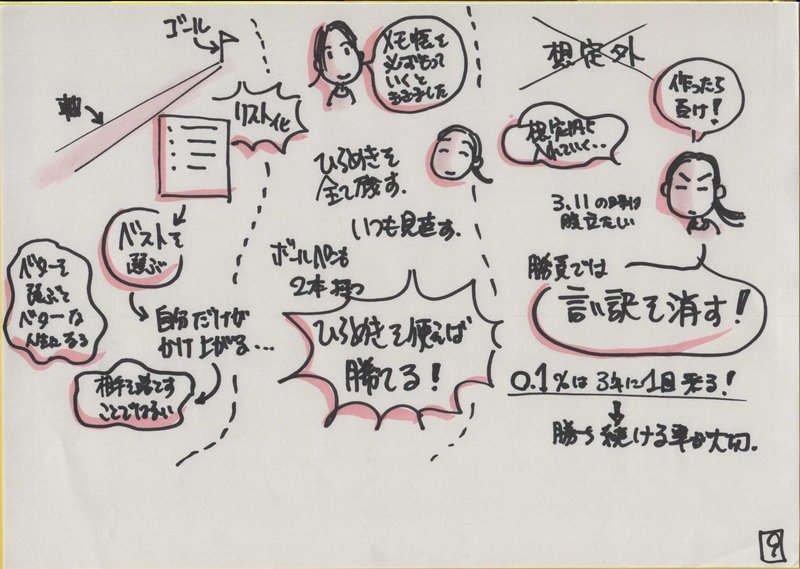 ゴール
軸
リスト化
ベストを
選ぶ
ベターを
選ぶと
ベターな
人生になる
自分だけが
かけ上がる…
相手を落とす
ことではない
メモ帳を
必ずもって
いくと
ききました
ひらめきを
全て残す.
いつも見直す.
ボールペンも
2本持つ
ひらめきを使えば
勝てる!
想定外
作ったら
負け!
想定内に
入れていく..
3.11の時は
腹立たしい
勝負では
言い訳を消す!
0.1%は3年に1回来る!
勝ち続ける事が大切.
9